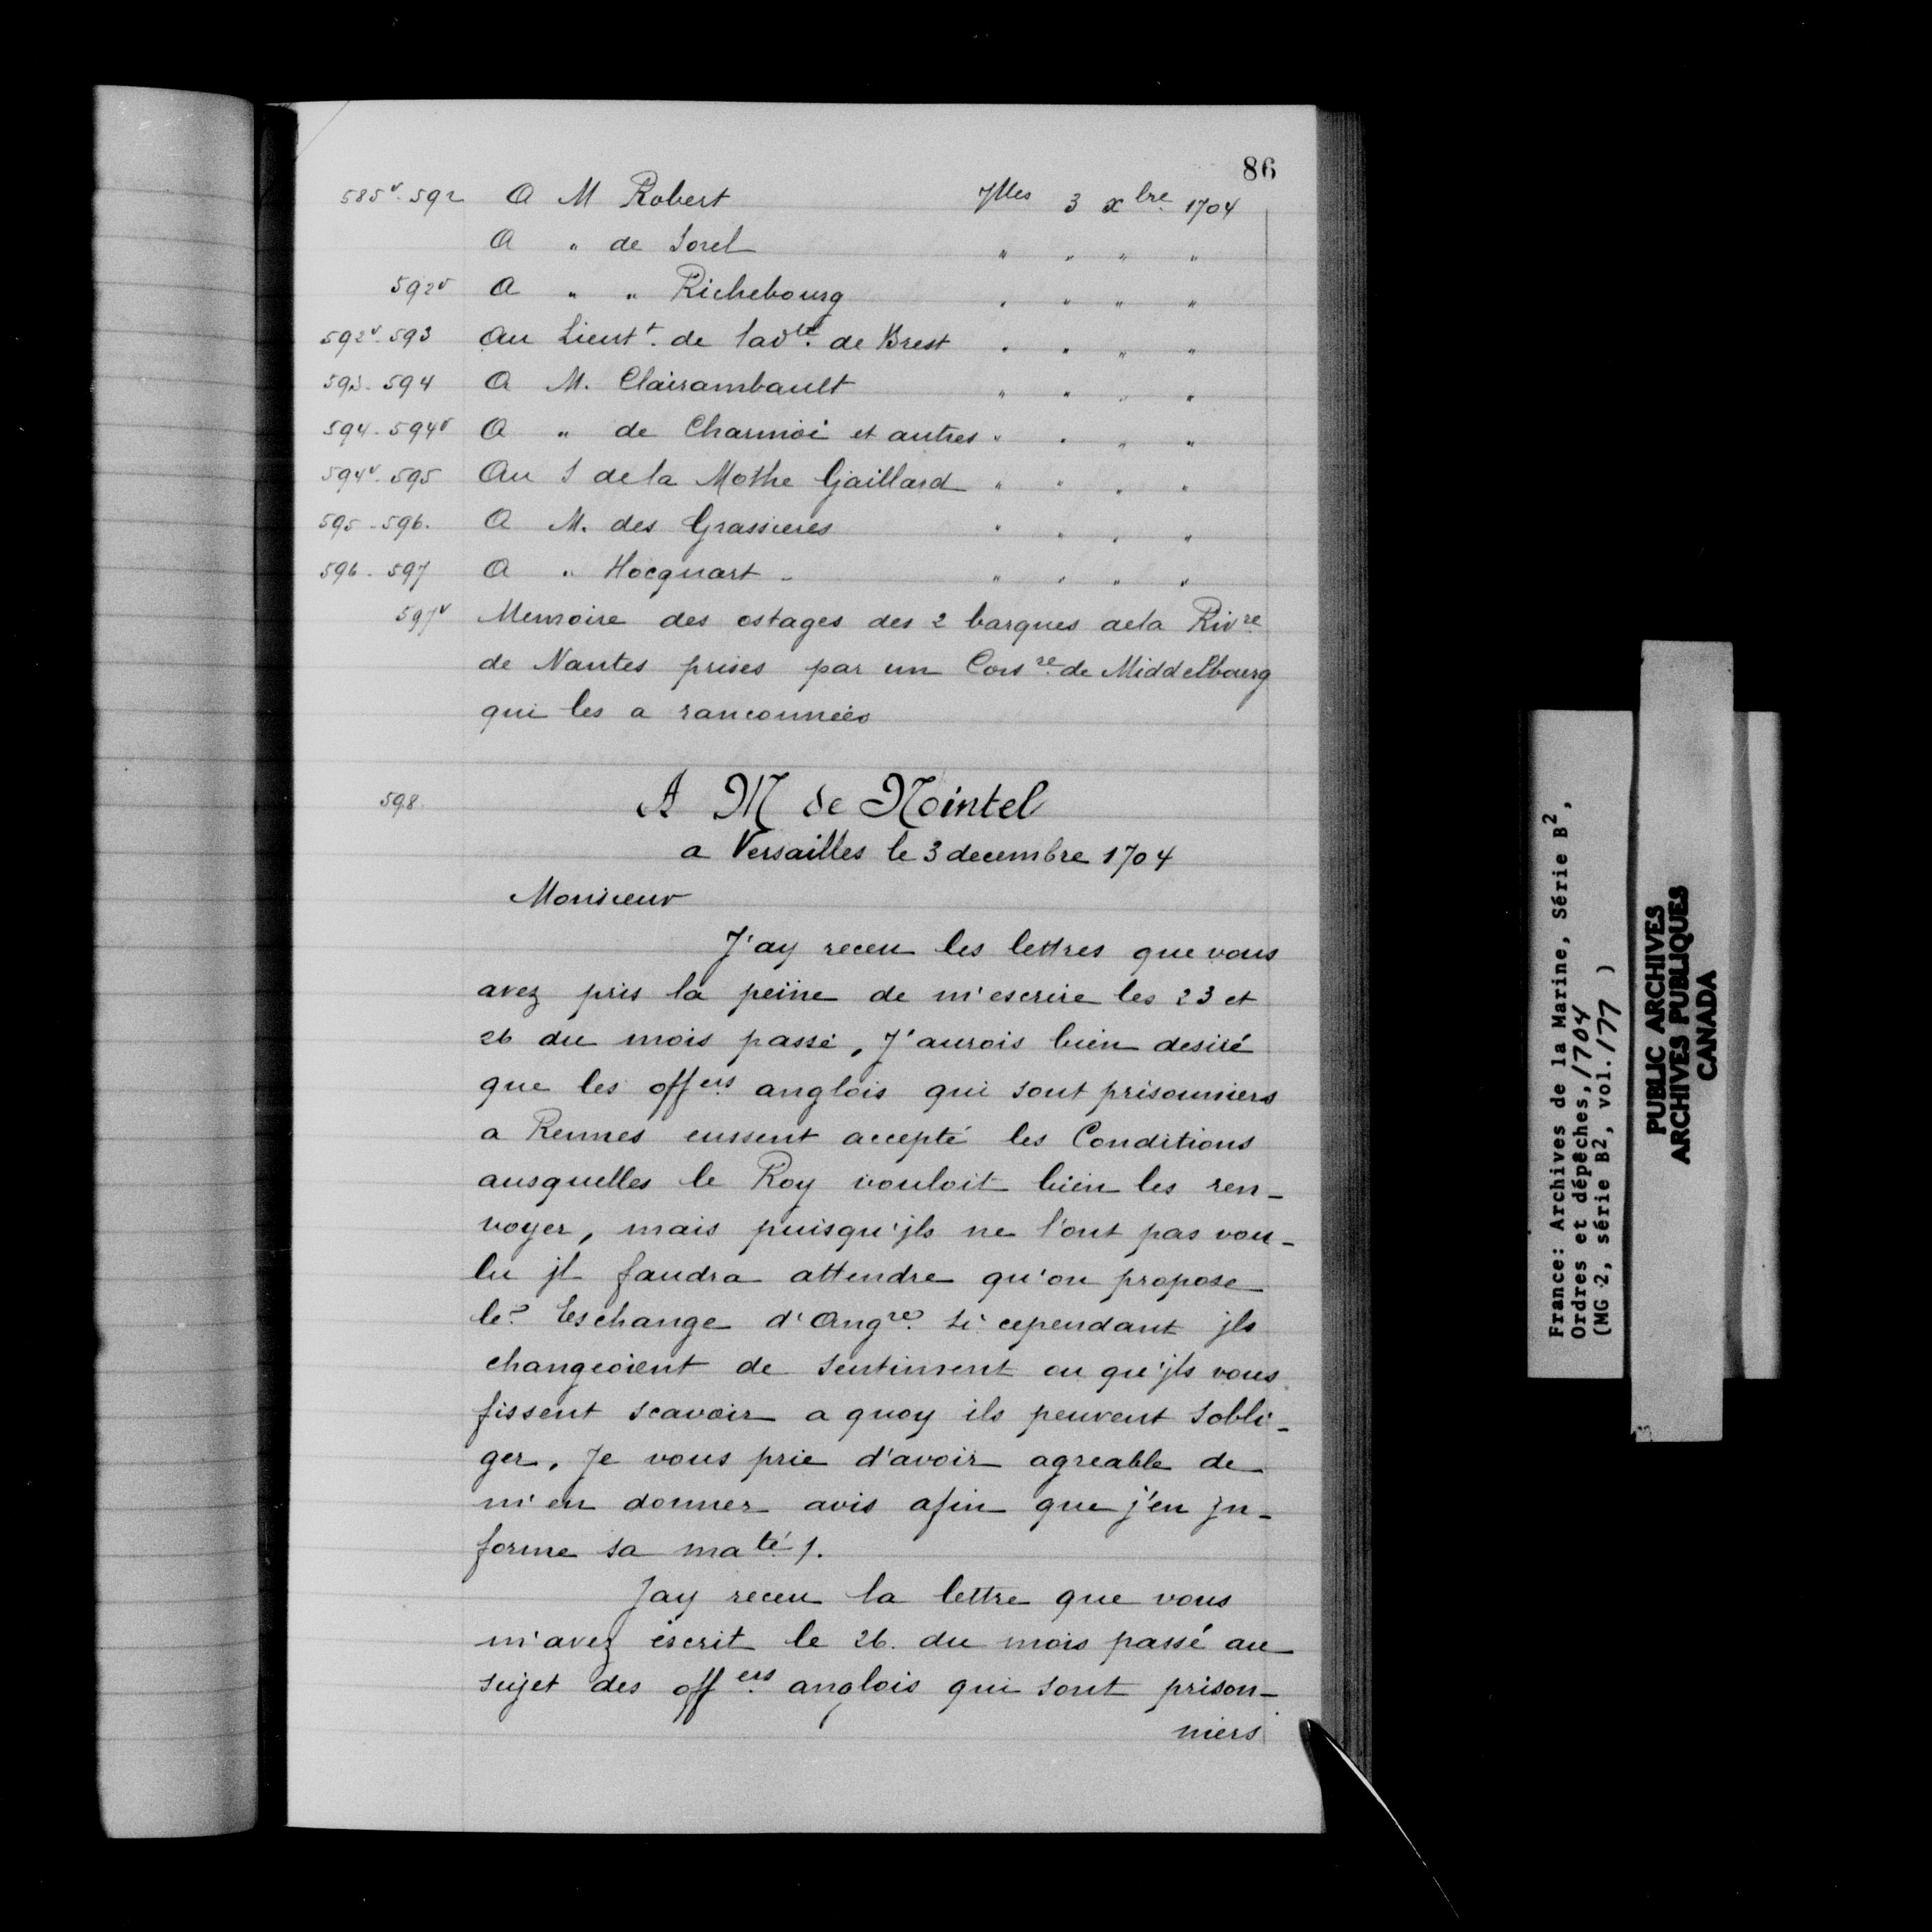 86
585v-592 A M Robert Vlles 3 xbre 1704
A " de Sorel " " " "
592v A " " Richebourg " " " "
592v-593 Au Lieutt. de ladte. de Brest " " " "
593-594 A M. Clairambault " " " "
594-594v A " de Charmoi et autres " " " "
594v-595 Au S de la Mothe Gaillard " " " "
595-596. A M. des Grassieres " " " "
596-597 A " Hocquart - " " " "
597v Memoire des ostages des 2 barques dela Rivre
de Nantes prises par un Corsre. de Middelbourg
qui les a ranconnées
598 A M de Nointel
a Versailles le 3 decembre 1704
Monsieur
J'ay receu les lettres que vous
avez pris la peine de m'escrire les 23 et
26 du mois passé, J'aurois bien desiré
que les offers. anglois qui sont prisonniers
a Rennes eussent accepté les Conditions
ausquelles le Roy vouloit bien les ren-
voyer, mais puisqu'jls ne l'ont pas vou-
lu jl faudra attendre qu'on propose
le? Eschange d'Angre. Si cependant jls
changeoient de sentiment ou qu'jls vous
fissent scavoir a quoy ils peuvent sobli-
ger, Je vous prie d'avoir agreable de
m'en donner avis afin que j'en jn-
forme sa maté ).
Jay receu la lettre que vous
m'avez escrit le 26. du mois passé au
sujet des offers. anglois qui sont prison-
niers
France: Archives de la Marine, Série B2,
Ordres et dépêches, 1704
(MG 2, série B2, vol. 177 )
PUBLIC ARCHIVES
ARCHIVES PUBLIQUES
CANADA